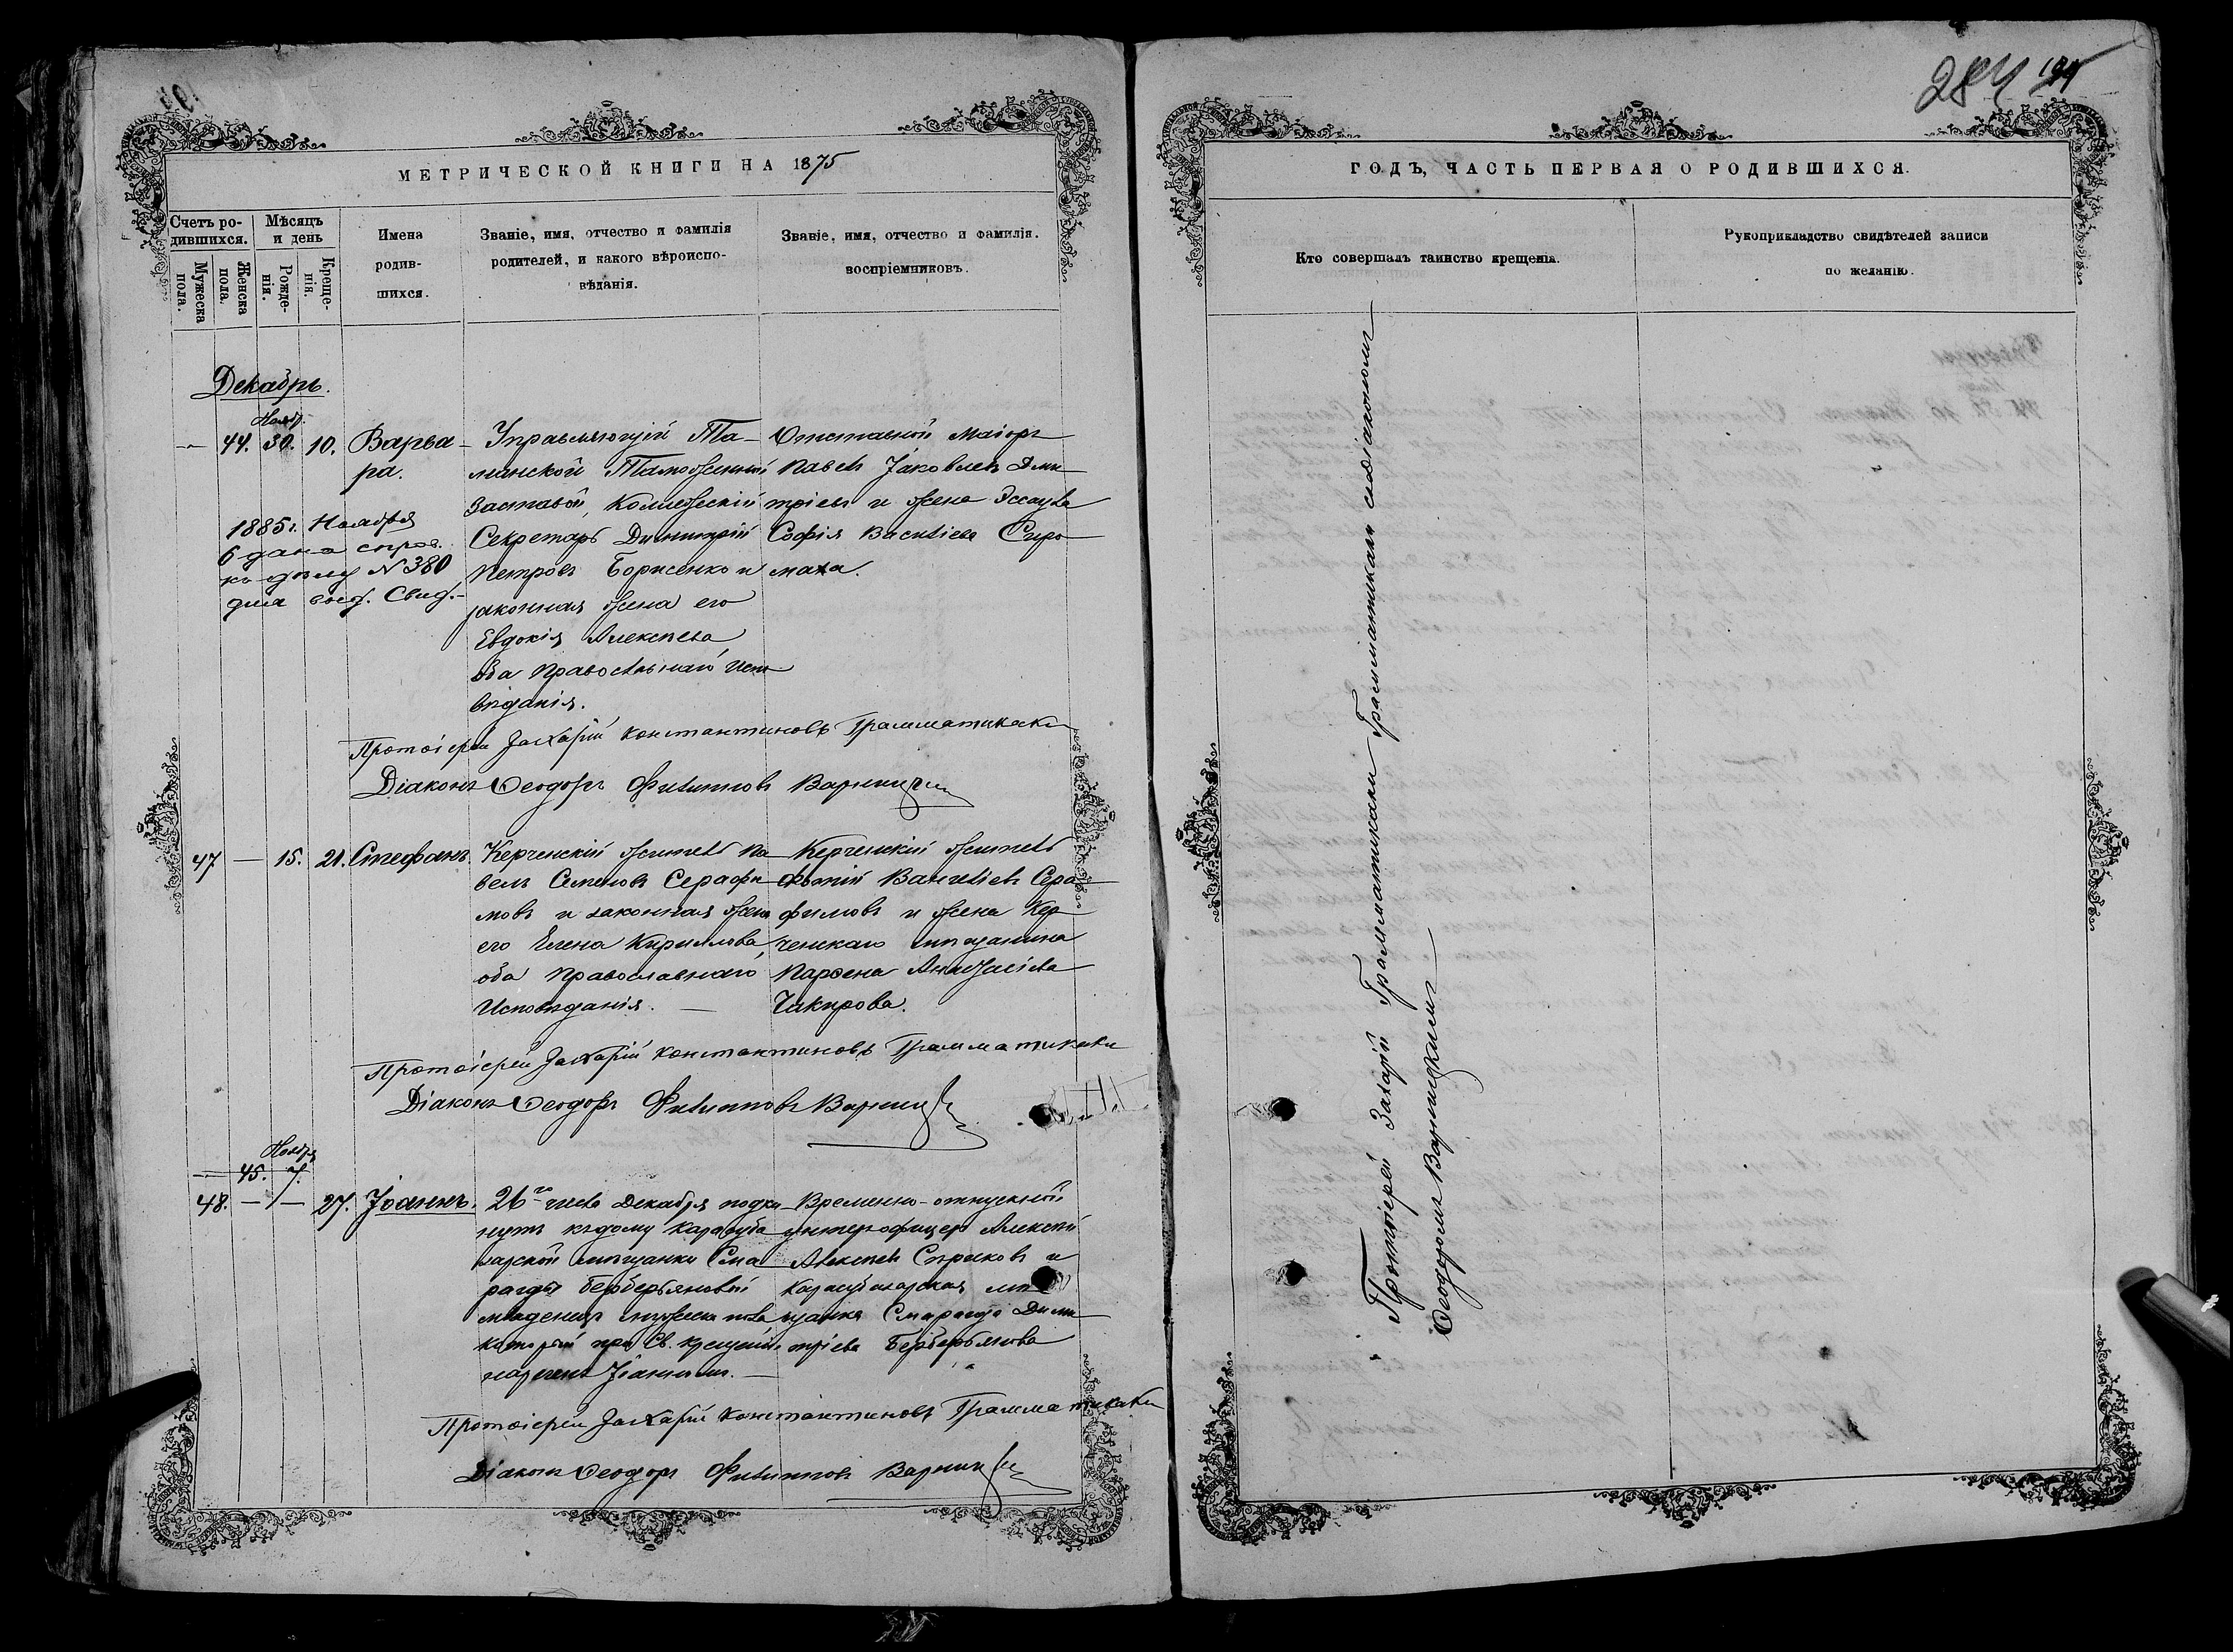 284
МЕТРИЧЕСКОЙ КНИГИ НА 1875
Счетъ ро-
дившихся.
Мужеска пола.
Женска пола.
Мѣсяцъ
и день
Рожде-
нія.
Креще-
нія.
Имена
родив-
шихся.
Званіе, имя, отчество и фамилія
родителей, и какого вѣроиспо-
вѣданія.
Званіе, имя, отчество и фамилія.
воспріемниковъ.
Декабрь.
Нояб.
— 44. 30. 10. Варва-
ра.
1885 г. Ноября
6 дана справ.
къ дѣлу N 380
для Свид.
Управляющій Та-
манской Таможенной
Заставой, Коллежскій
Секретарь Димитрій
Петровъ Борисенко и
законная жена его
Евдокія Алексѣева
оба православнаго испо-
вѣданія.
Отставной Маіоръ
Павелъ Іаковлевъ Дми-
тріевъ и жена Эссаула
Софія Васильева Сиро-
маха.
Протоіерей Захарій Константиновъ Грамматикаки
Діаконъ Ѳеодоръ Филипповъ Варницкій
47 — 15. 21. Стефанъ.
Керченскій житель Па-
велъ Семеновъ Серафи-
мовъ и законная жена
его Елена Кириллова,
оба православнаго
Исповѣданія. —
Керченскій житель
Фотій Вангеліевъ Сера-
фимовъ и жена Кер-
ченскаго мѣщанина
Парѳена Анастасіева
Чакирова.
Протоіерей Захарій Константиновъ Грамматикаки
Діаконъ Ѳеодоръ Филипповъ Варницкій
Ноябрь
— 45. 7.
48. — — 27. Іоаннъ.
26го числа Декабря подки-
нутъ къ дому Карасуба-
зарской мѣщанки Сма-
рагды Берберьяновой
младенецъ мужеска пола
который при Св. крещеніи
нареченъ Іоанномъ. —
Временно-отпускной
унтеръ-офицеръ Алексѣй
Алексѣевъ и
Карасубазарская мѣ-
щанка Смарагда Дими-
тріева Берберьянова
Протоіерей Захарій Константиновъ Грамматикаки
Діаконъ Ѳеодоръ Филипповъ Варницкій
ГОДЪ, ЧАСТЬ ПЕРВАЯ О РОДИВШИХСЯ.
Кто совершалъ таинство крещенія.
Рукоприкладство свидѣтелей записи
по желанію.
Протоіерей Захарій Грамматикаки Грамматикаки съ діакономъ
Ѳеодоромъ Варницкимъ